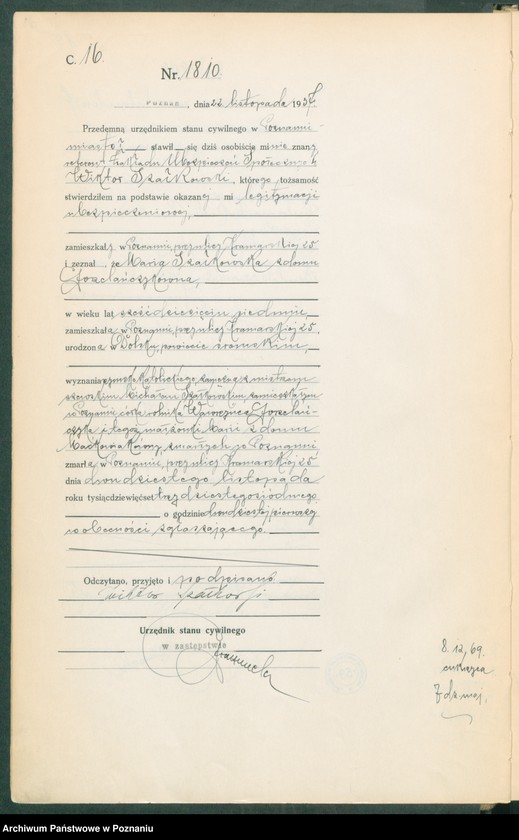 C. 16.
Nr. 1810.
dnia 22 listopada 193
Przedemną urzędnikiem stanu cywilnego w Poznaniu
miasto stawił się dziś osobiście mi nie znany
referent Zakładu Ubezpieczeń
Wiktor Szałkowski, którego tożsamość
stwierdziłem na podstawie okazanej mi legitymacji
ubezpieczeniowej,
zamieszkały w Poznaniu, przy ulicy Kramarskiej 25
i zeznał, że Maria Szałkowska z domu
w wieku lat sześćdziesięciu siedmiu,
zamieszkała w Poznaniu, przy ulicy Kramarskiej 25,
urodzona w Dolsku, powiecie śremskim,
wyznania rzymsko katolickiego, zamężna z mistrzem
szewskim Michałem Szałkowskim, zamieszkałym
w Poznaniu, córka rolnika Wawrzyńca
i tegoż małżonki Marii z domu
zmarłych w Poznaniu
zmarła w Poznaniu, przy ulicy Kramarskiej 25
dnia dwudziestego listopada
roku tysiącdziewięćset trzydziestego siódmego
o godzinie dwudziestej pierwszej
w obecności zgłaszającego.
Odczytano, przyjęto i podpisano
Wiktor Szałkowski
Urzędnik stanu cywilnego
w zastępstwie
8.12.69.
Archiwum Państwowe w Poznaniu